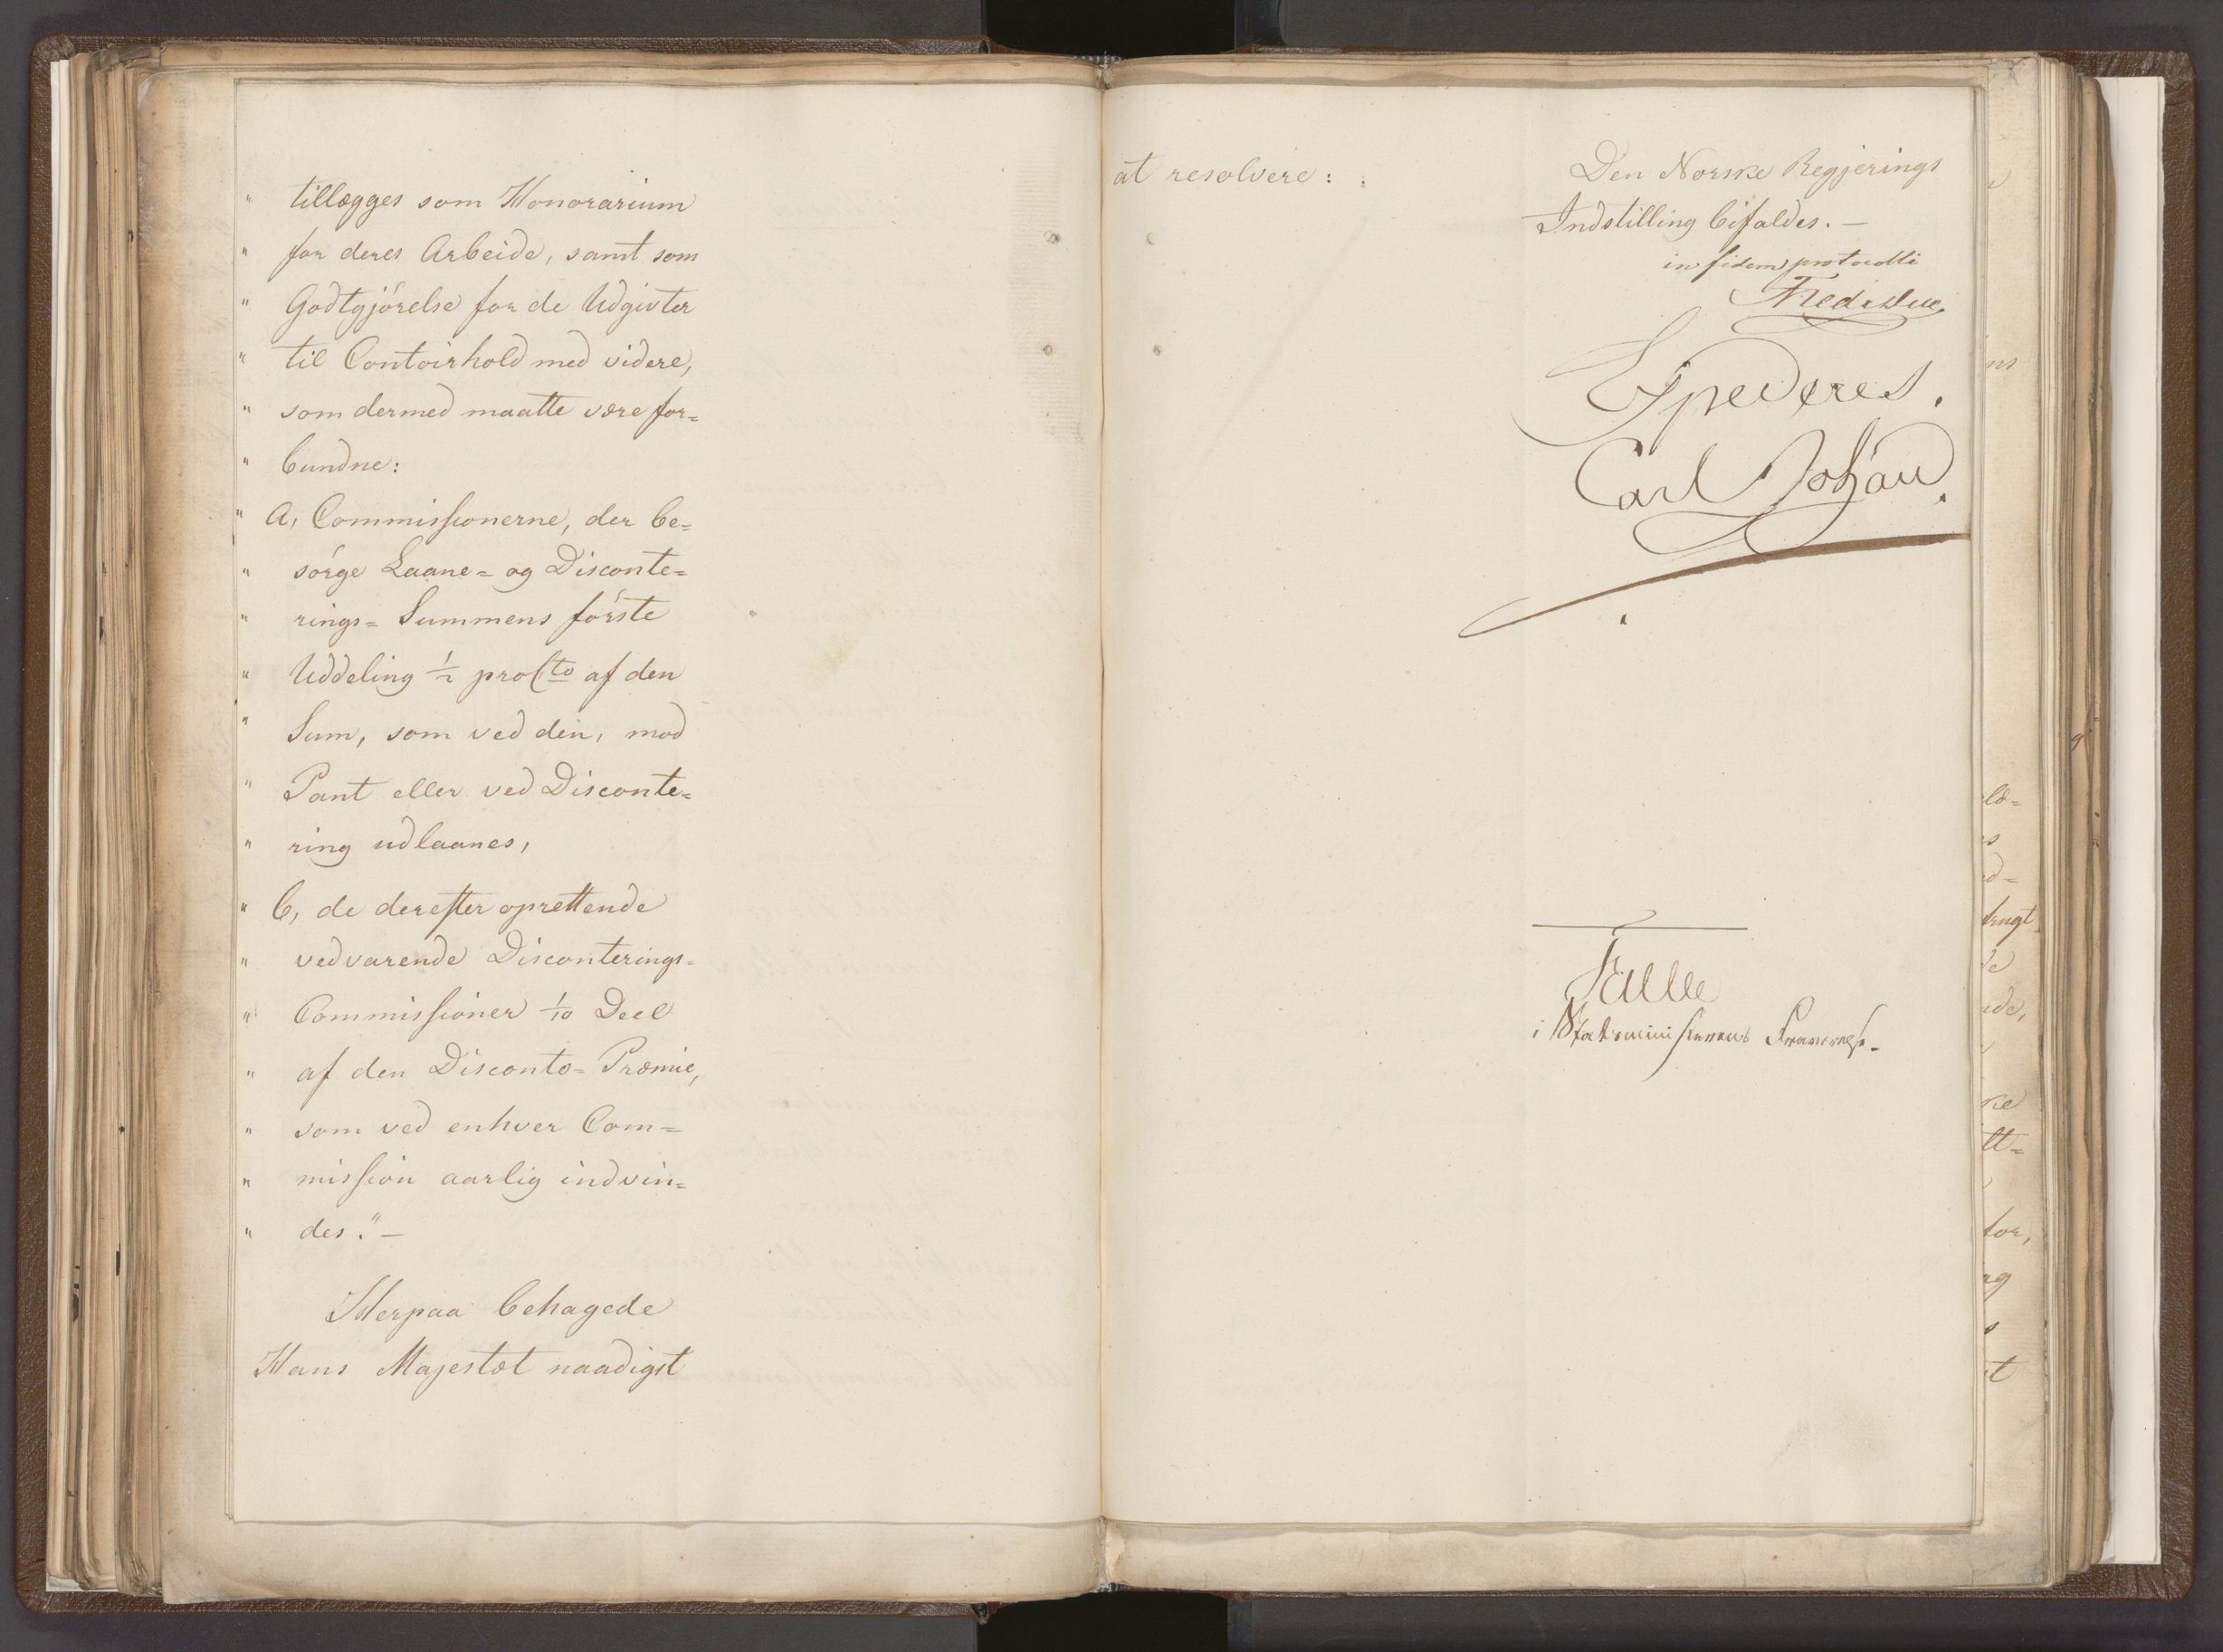 " tillægges som Honorarium
" for deres Arbeide, samt som
" Godtgjörelse for de Udgivter
" til Contoirhold med videre,
" som dermed maatte være for=
" bundne:
" a, Commissionerne, der be=
" sörge Laane= og Disconte=
" rings= Summens förste
" Uddeling ½ proCto af den
" Sum, som ved dem, mod
" Pant eller ved Disconte=
" ring udlaanes,
" b, de derefter oprettende
" vedvarende Disconterings=
" Commissioner 1/10 Deel
" af den Disconto= Præmie,
" som ved enhver Com=
" mission aarlig indvin=
" des." —
Herpaa behagede
Hans Majestæt naadigst
at resolvere:
Den Norske Regjerings
Indstilling bifaldes. —
in fidem protocolli
Expederes.
Carl Johan
i Statsministerens Fraværelse.